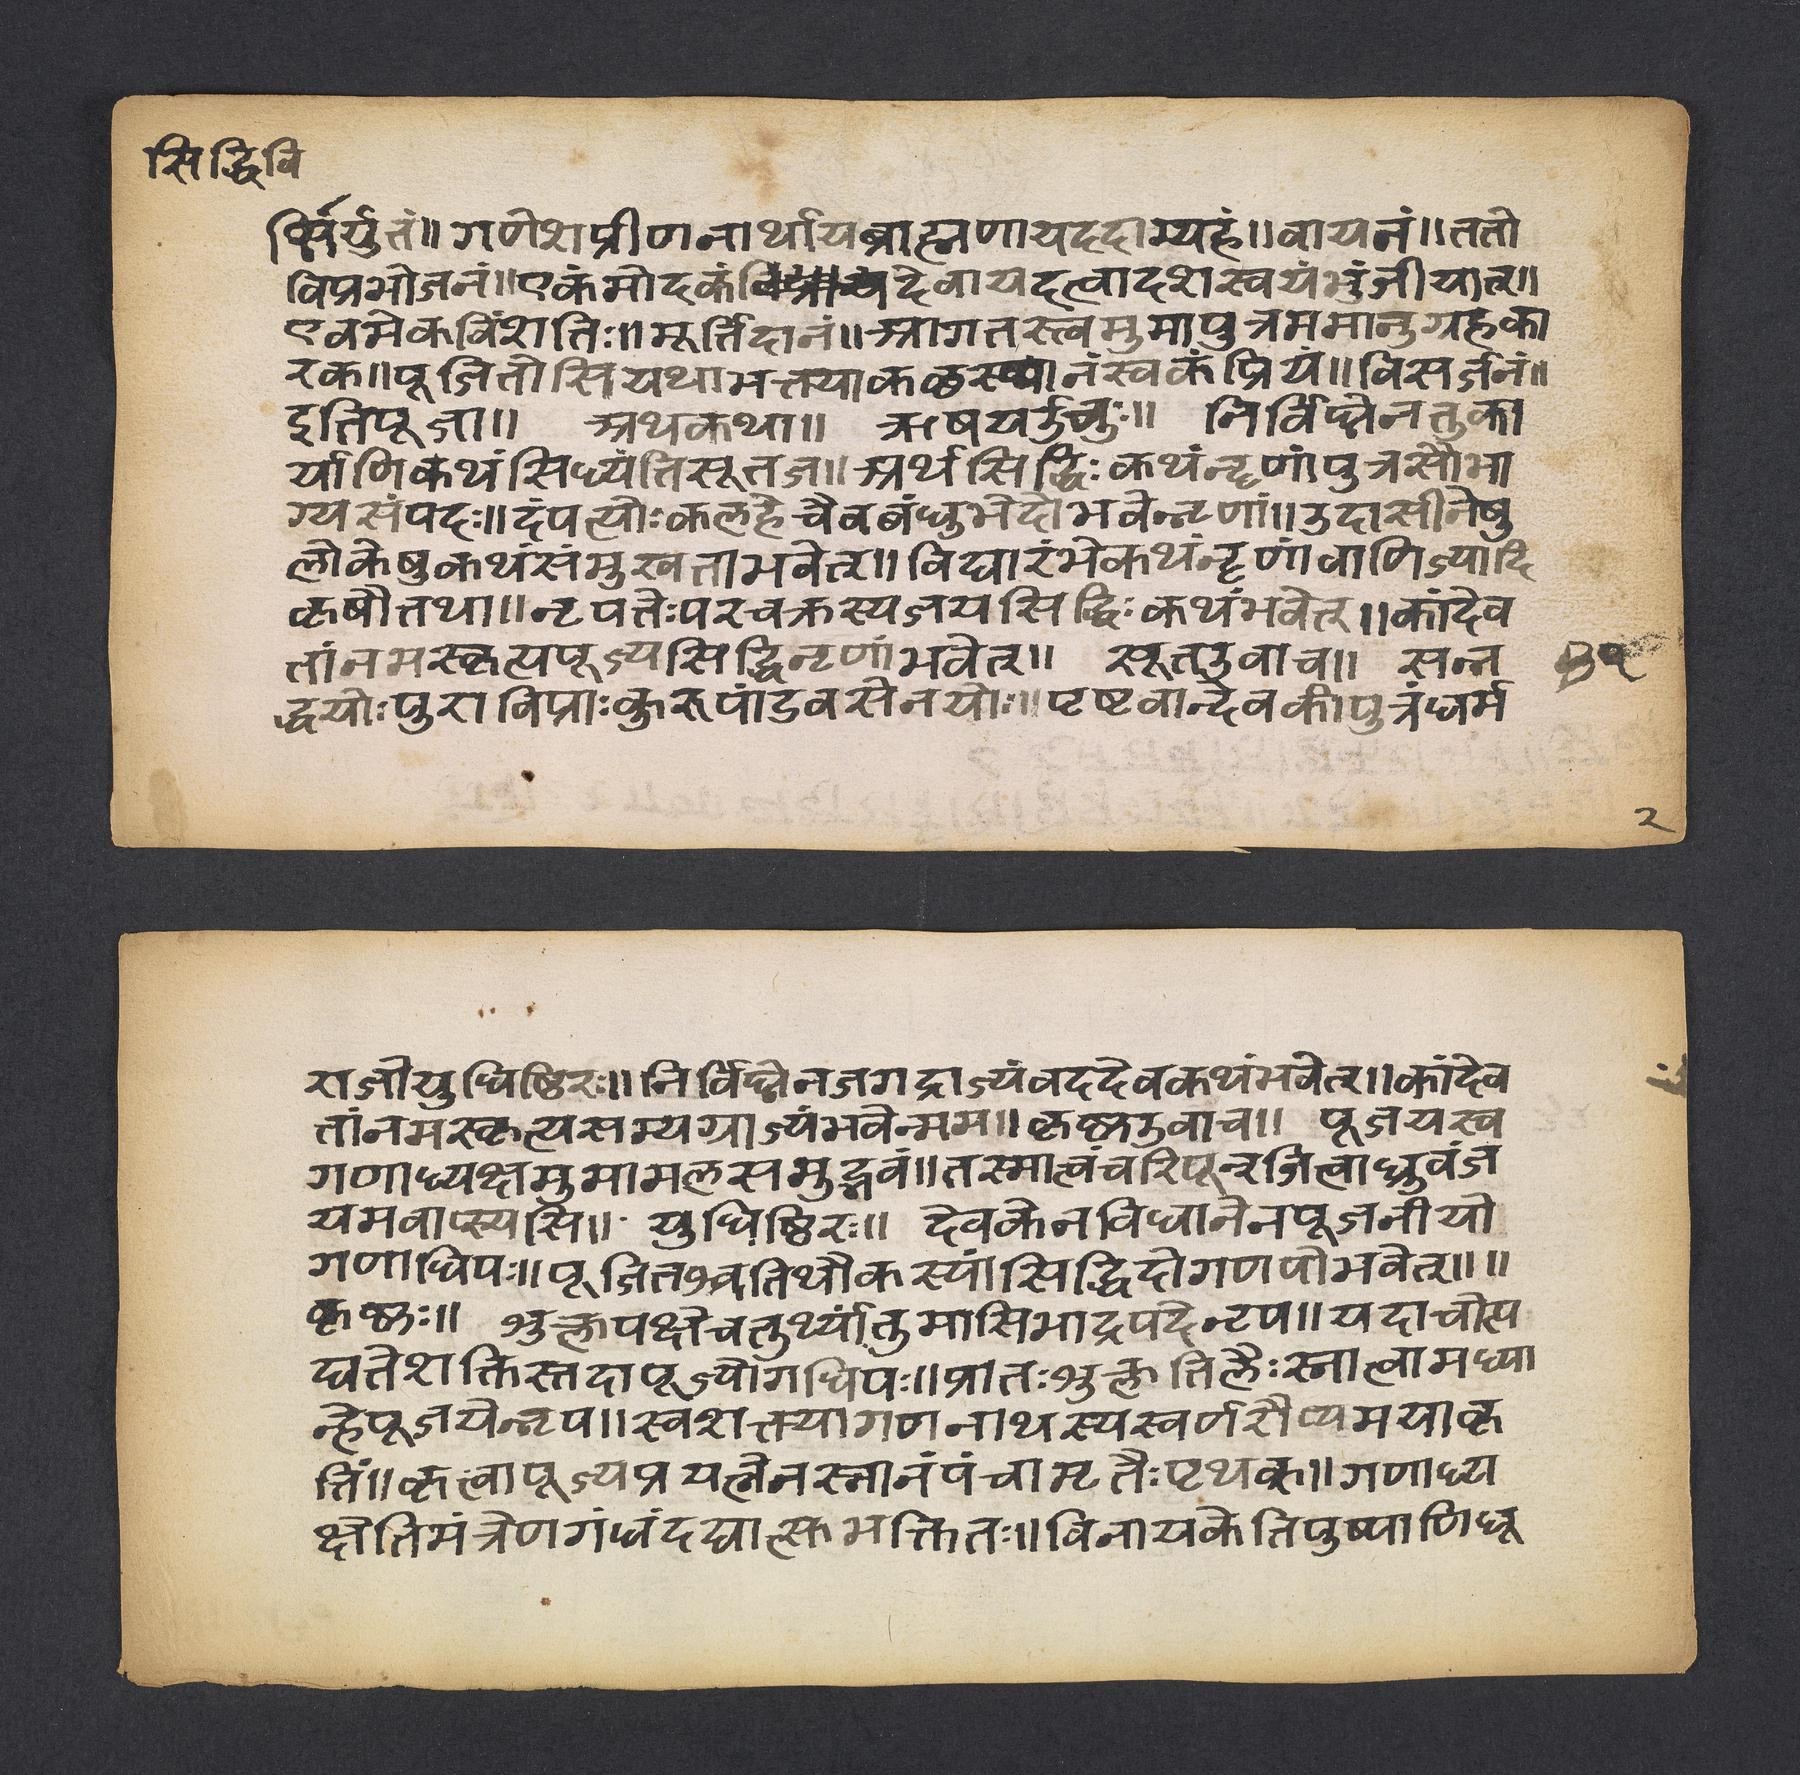 सिद्धिवि
र्षिर्युतं॥गणेशप्रीणनार्थायब्राह्मणायददाम्यहं॥वायनं॥ततो
विप्रभोजनं॥एकंमोदकंदेवायदत्वादशस्वयंभुंजीयात्॥
एवमेकविंशतिः॥मूर्त्तिदानं॥आगतस्त्वमुमापुत्रममानुग्रहका
रक॥पूजितोसियथाभत्तयाकछस्थानंस्वकंप्रियं॥विसर्जनं॥
इतिपूजा॥ अथकथा॥ ऋषयउचुः॥ निर्विघ्नेनत्तुका
र्याणिकथंसिध्यंतिसूतज॥अर्थसिद्धिःकथंनृणांपुत्रसौभा
ग्यसंपदः॥दंपत्योःकलहेचैवबंधुभेदोभवेन्नृणां॥उदासीनेषु
लोकेषुकथंसंमुखताभवेत्॥विद्यारंभेकथंनृणांवाणिज्यादि
कृषौतथा॥नृपतेःपरचक्रस्यजयसिद्धिःकथंभवेत्॥कांदेव
तांनमस्कृत्यपूज्यसिद्धिनृणांभवेत्॥ सूतउवाच॥ सन्न
द्धयोःपुराविप्राःकुरूपांडवसेनयोः॥पृष्टवान्देवकीपुत्रंधर्म
२
राजोयुधिष्ठिरः॥निर्विघ्नेनजगद्राज्यंवददेवकथंभवेत्॥कांदेव
तांनमस्कृत्यसम्यग्राज्यंभवेन्मम॥कृष्णउवाच॥ पूजयस्व
गणाध्यक्षमुमामलसमुद्भवं॥तस्मात्वंचरिपून्जित्वाध्रुवंज
यमवाप्स्यसि॥ युधिष्ठिरः॥ देवकेनविधानेनपूजनीयो
गणाधिपः॥पूजिततिथौकस्यांसिद्धिदोगणपोभवेत्॥॥
कृष्णः॥ शुक्लपक्षेचतुर्थ्यांतुमासिभाद्रपदेनृप॥यदाचोत्प
द्यतेशक्तिस्तदापूज्योगधिपः॥प्रातःशुक्लतिलैःस्नात्वामध्या
न्हेपूजयेन्नृप॥स्वशत्तयागणनाथस्यस्वर्णरौप्यमयाकृ
तिं॥कृत्वापूज्यप्रयत्नेनस्नानंपंचामृतैःपृथक्॥गणाध्य
क्षेतिमंत्रेणगंधंदद्यात्स्कभक्तितः॥विनायकेतिपुष्पाणिधू